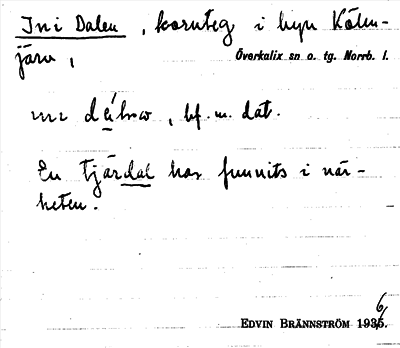 Ini Dalen, kornteg i byn Kölm-
järv,
Överkalix sn o. tg. Norrb. l.
bf. m. dat.
En tjärdal har funnits i när-
heten.
EDVIN BRÄNNSTRÖM 1936.